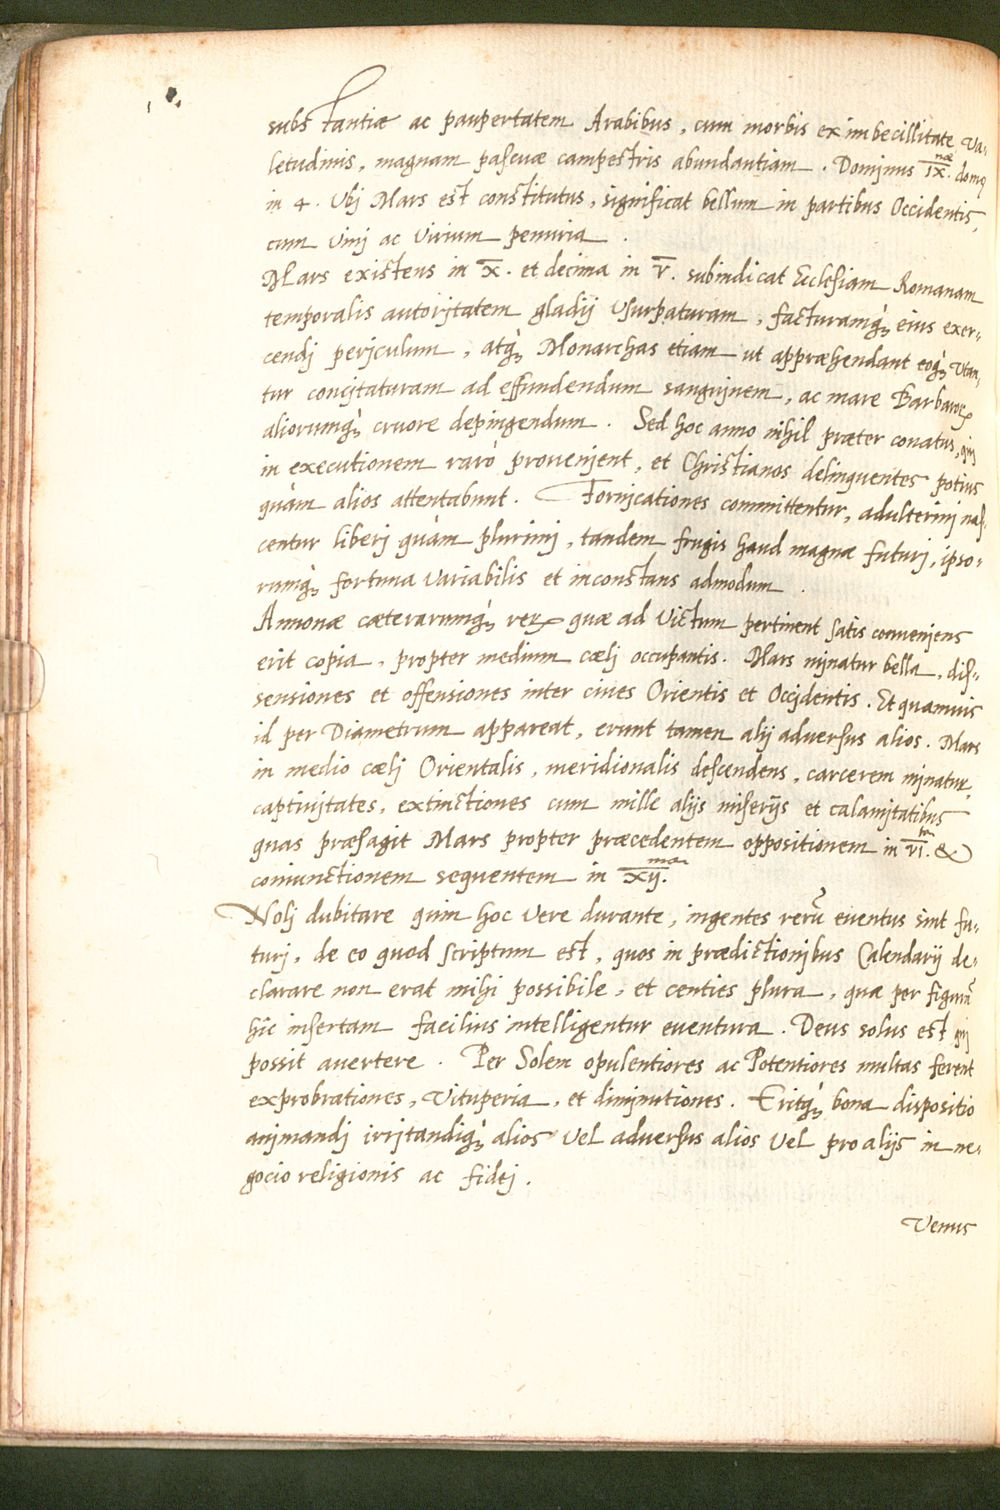 substantiæ ac paupertatem Arabibus, cum morbis ex imbecillitate va-
letudinis, magnam pascuæ campestris abundantiam. Dominus IX.næ domꝰ
in 4. Ubj Mars est constitutus, significat bellum in partibus Occidentis,
cum vinj ac virium penuria.
Mars existens in X. et decima in V. subindicat Ecclesiam Romanam
temporalis autorjtatem gladij usurpaturam, facturamqꝫ eius exer-
cendj perjculum, atqꝫ Monarchas etiam ut appræhendant eoqꝫ utan-
tur concjtaturam ad effundendum sangujnem, ac mare Barbaroꝝ
aliorumqꝫ cruore depingendum. Sed hoc anno nihil præter conatus, quj
in executionem raro provenjent, et Christianos delinquentes potius
quàm alios attentabunt. Fornjcationes committentur, adulterinj nas-
centur liberj quàm plurimj, tandem frugis haud magnæ futurj, ipso-
rumqꝫ fortuna variabilis et inconstans admodum.
Annonæ cæterarumqꝫ reꝝ quæ ad victum pertinent satis convenjens
erit copia, propter medium cælj occupantis. Mars mjnatur bella, dis-
sensiones et offensiones inter ciues Orientis et Occjdentis. Et quamuis
id per Diametrum appareat, erunt tamen alij adversus alios. Mars
in medio cælj Orientalis, meridionalis descendens, carcerem mjnatur,
captiujtates, extinctiones cum mille alijs miserijs et calamjtatibus
quas præsagit Mars propter præcedentem oppositionem in VI.ta &
coniunctionem sequentem in XIJ.ma
Nolj dubitare quin hoc vere durante, ingentes rerū euentus sint fu-
turj, de eo quod scriptum est, quos in prædictionjbus Calendarij de-
clarare non erat mihi possibile, et centies plura, quæ per figurā
hîc insertam facilius intelligentur euentura. Deus solus est quj
possit auertere. Per Solem opulentiores ac Potentiores multas ferent
exprobrationes, vituperia, et dimjnutiones. Eritqꝫ bona dispositio
anjmandj irrjtandiqꝫ alios vel adversus alios vel pro alijs in ne-
gocio religionis ac fidej.
Venus